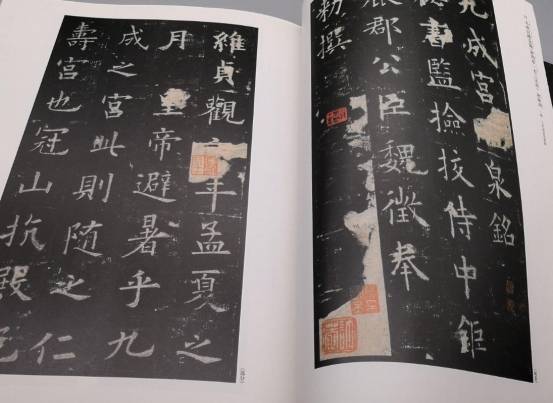 九成宮泉銘
書監撿挍侍中鉅
鹿郡公臣魏徵奉
勑撰
維貞觀六年孟夏之
月皇帝避暑乎九
成之宮此則隨之仁
壽宮也冠山抗殿